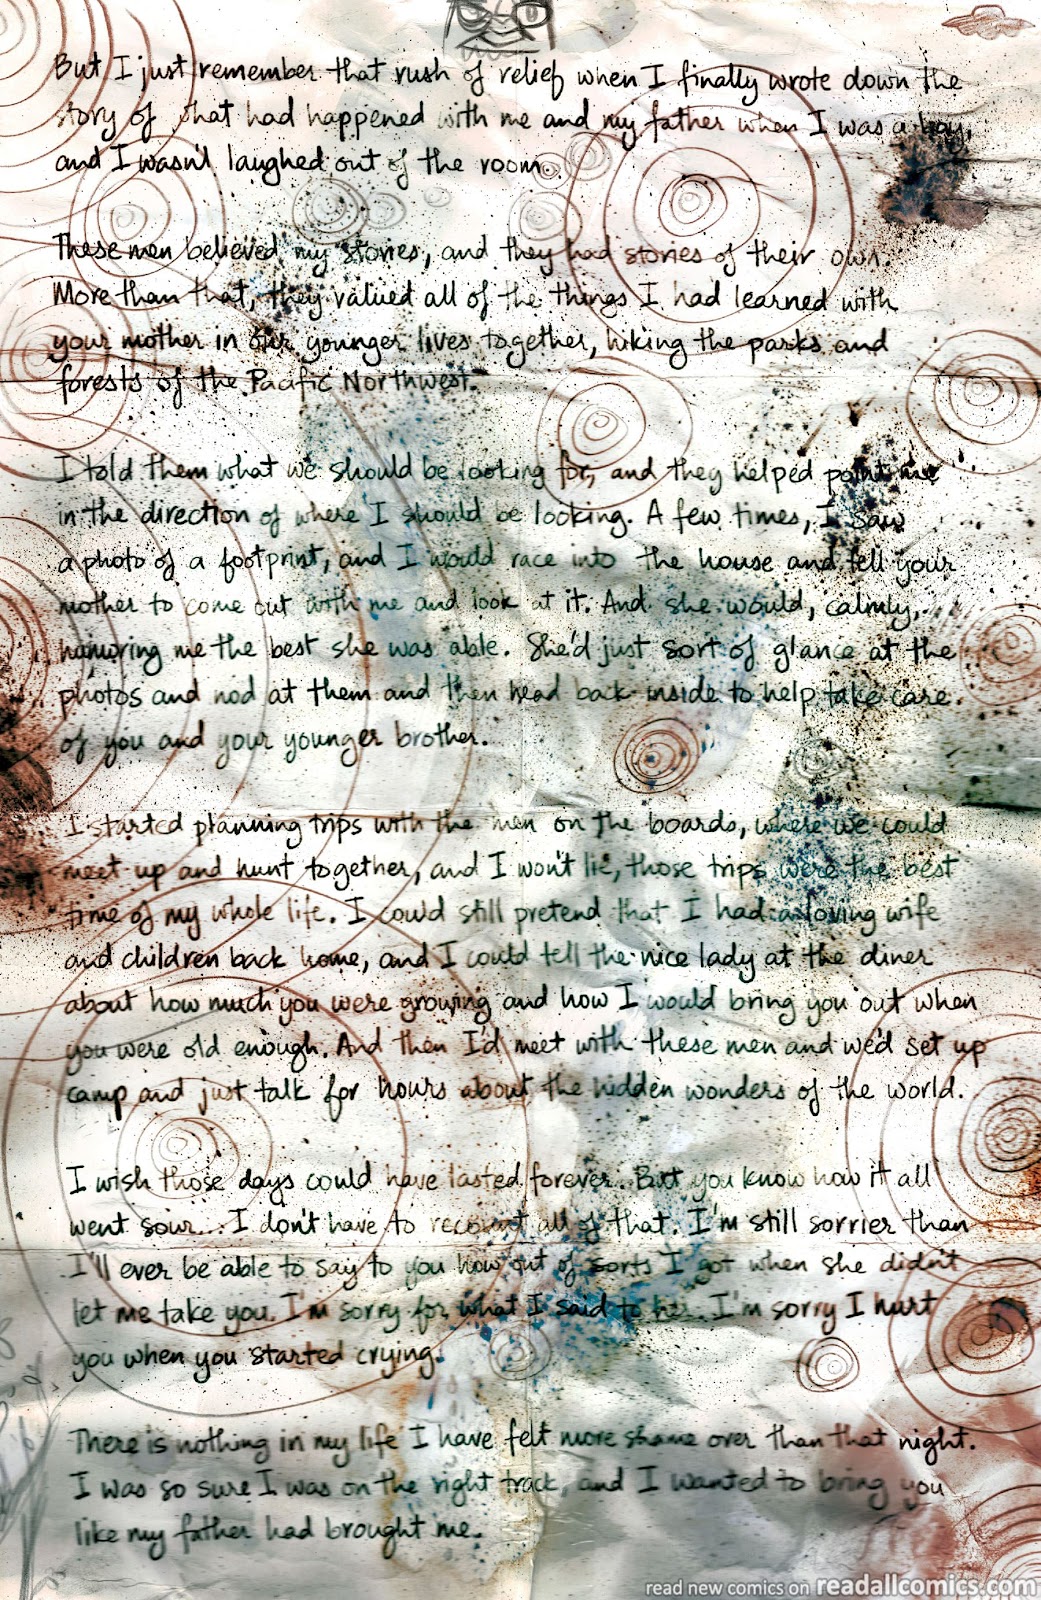 But I just remember that rush of relief when I finally wrote down the
story of what had happened with me and my father when I was a boy,
and I wasn't laughed out of the room.
These men believed my stories, and they had stories of their own.
More than that, they valued all of the things I had learned with
your mother in our younger lives together, hiking the parks and
forests of the Pacific Northwest.
I told them what we should be looking for, and they helped point me
in the direction of where I should be looking. A few times, I saw
a photo of a footprint, and I would race into the house and tell your
mother to come out with me and look at it. And she would, calmly,
humoring me the best she was able. She'd just sort of glance at the
photos and nod at them and then head back inside to help take care
of you and your younger brother.
I started planning trips with the men on the boards, where we could
meet up and hunt together, and I won't lie, those trips were the best
time of my whole life. I could still pretend that I had a loving wife
and children back home, and I could tell the nice lady at the diner
about how much you were growing and how I would bring you out when
you were old enough. And then I'd meet with these men and we'd set up
camp and just talk for hours about the hidden wonders of the world.
I wish those days could have lasted forever. But you know how it all
went sour... I don't have to recount all of that. I'm still sorrier than
I'll ever be able to say to you how out of sorts I got when she didn't
let me take you. I'm sorry for what I said to her. I'm sorry I hurt
you when you started crying.
There is nothing in my life I have felt more shame over than that night.
I was so sure I was on the right track, and I wanted to bring you
like my father had brought me.
read new comics on readallcomics.com